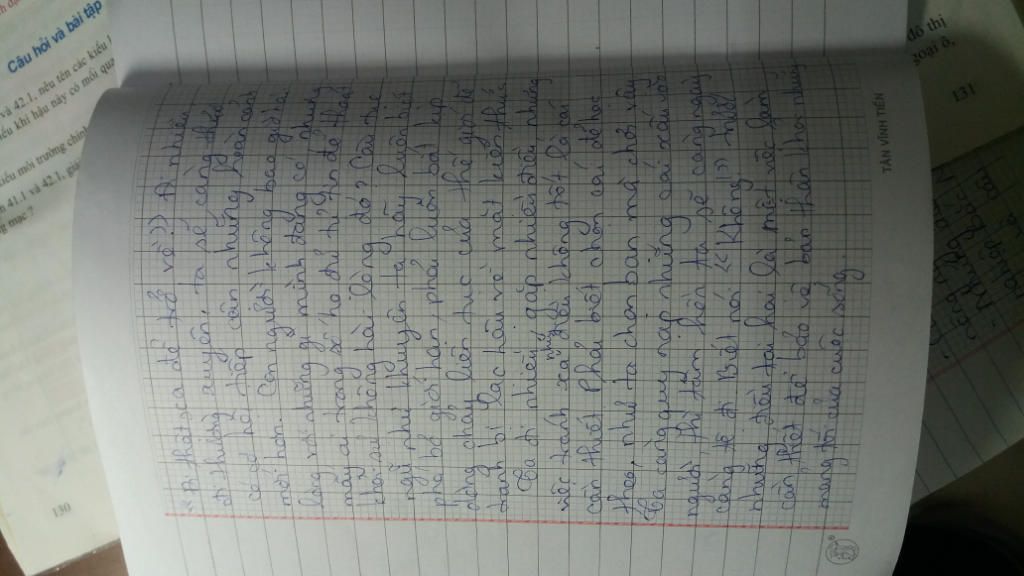 <<Đi thật xa để trở về>> Đi nhiều
đi thường xuyên, ta sẽ càng thấu
có sự hội nhập cần những hoàn cảnh
mới hơn. Con người không bao giờ hài
lòng với những gì mình đang có nhưng
mấy ai trong số họ đủ tự tin để thoát
khỏi sự không hài lòng đó? Câu tục
ngữ như khuyên ta hãy luôn biết
phá bỏ giới hạn, phải luôn bắt kịp
dòng chảy liên tục của thế giới để
tránh bị lạc hậu về mặt kiến thức
Ta đi nhiều, gặp nhiều điều nhưng
việc tránh xa những điều không tốt là rất
cần thiết. Phải biết chọn cái để học
theo, như ta chọn bạn mà chơi vậy
Ta càng quy nạp những cái xấu, con
người, phẩm hiền ta sẽ càng ngày
càng tệ đi. Biết nói <<Không>> trước
những điều tai hại là một việc làm
cần thiết để bảo vệ bản thân khỏi những
mảng tối của cuộc sống.
TÂN VĨNH TIẾN
Câu hỏi và bài tập
và 42.1, nêu tên các kiểu
kiểu khí hậu này có mối qua
kiểu môi trường chính
41.1 và 42.1, giải
ng mạc?
130
đô thị
ngoại ô,
131